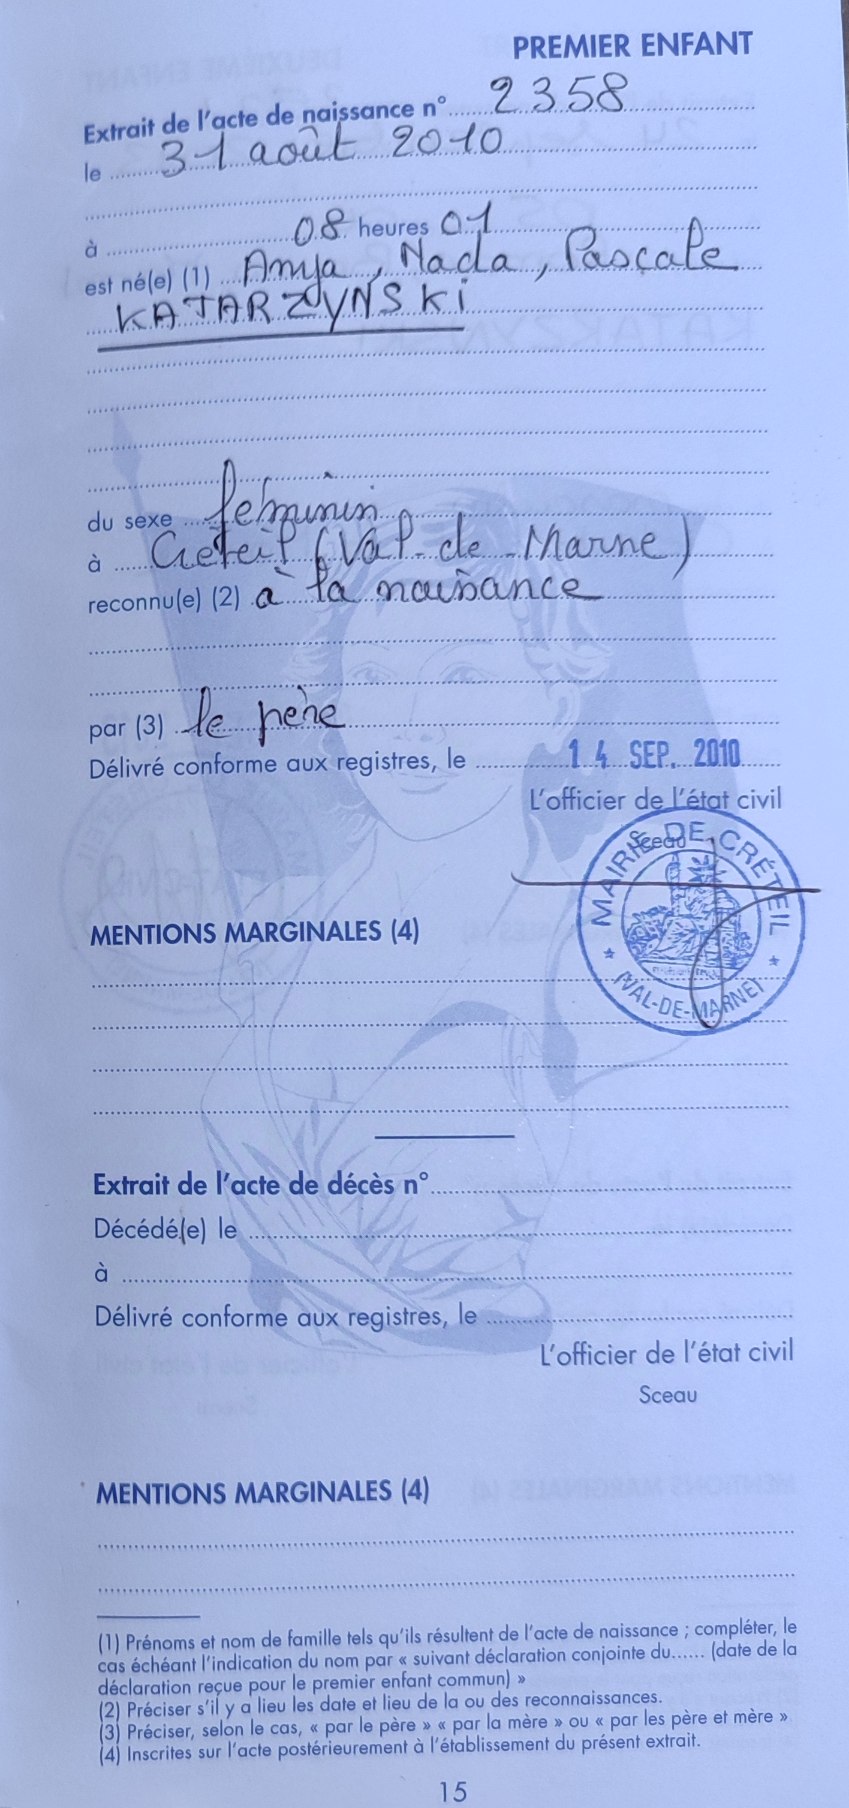 PREMIER ENFANT
Extrait de l'acte de naissance n° 2358
le 31 août 2010
à 08 heures 01
est né(e) (1) Anya, Nada, Pascale
KATARZYNSKI
du sexe féminin
à Créteil (Val-de-Marne)
reconnu(e) (2) à la naissance
par (3) le père
Délivré conforme aux registres, le 14 SEP. 2010
L'officier de l'état civil
Sceau
MAIRIE DE CRÉTEIL
* (VAL-DE-MARNE) *
MENTIONS MARGINALES (4)
Extrait de l'acte de décès n°
Décédé(e) le
à
Délivré conforme aux registres, le
L'officier de l'état civil
Sceau
MENTIONS MARGINALES (4)
(1) Prénoms et nom de famille tels qu'ils résultent de l'acte de naissance ; compléter, le
cas échéant l'indication du nom par « suivant déclaration conjointe du...... (date de la
déclaration reçue pour le premier enfant commun) »
(2) Préciser s'il y a lieu les date et lieu de la ou des reconnaissances.
(3) Préciser, selon le cas, « par le père » « par la mère » ou « par les père et mère »
(4) Inscrites sur l'acte postérieurement à l'établissement du présent extrait.
15